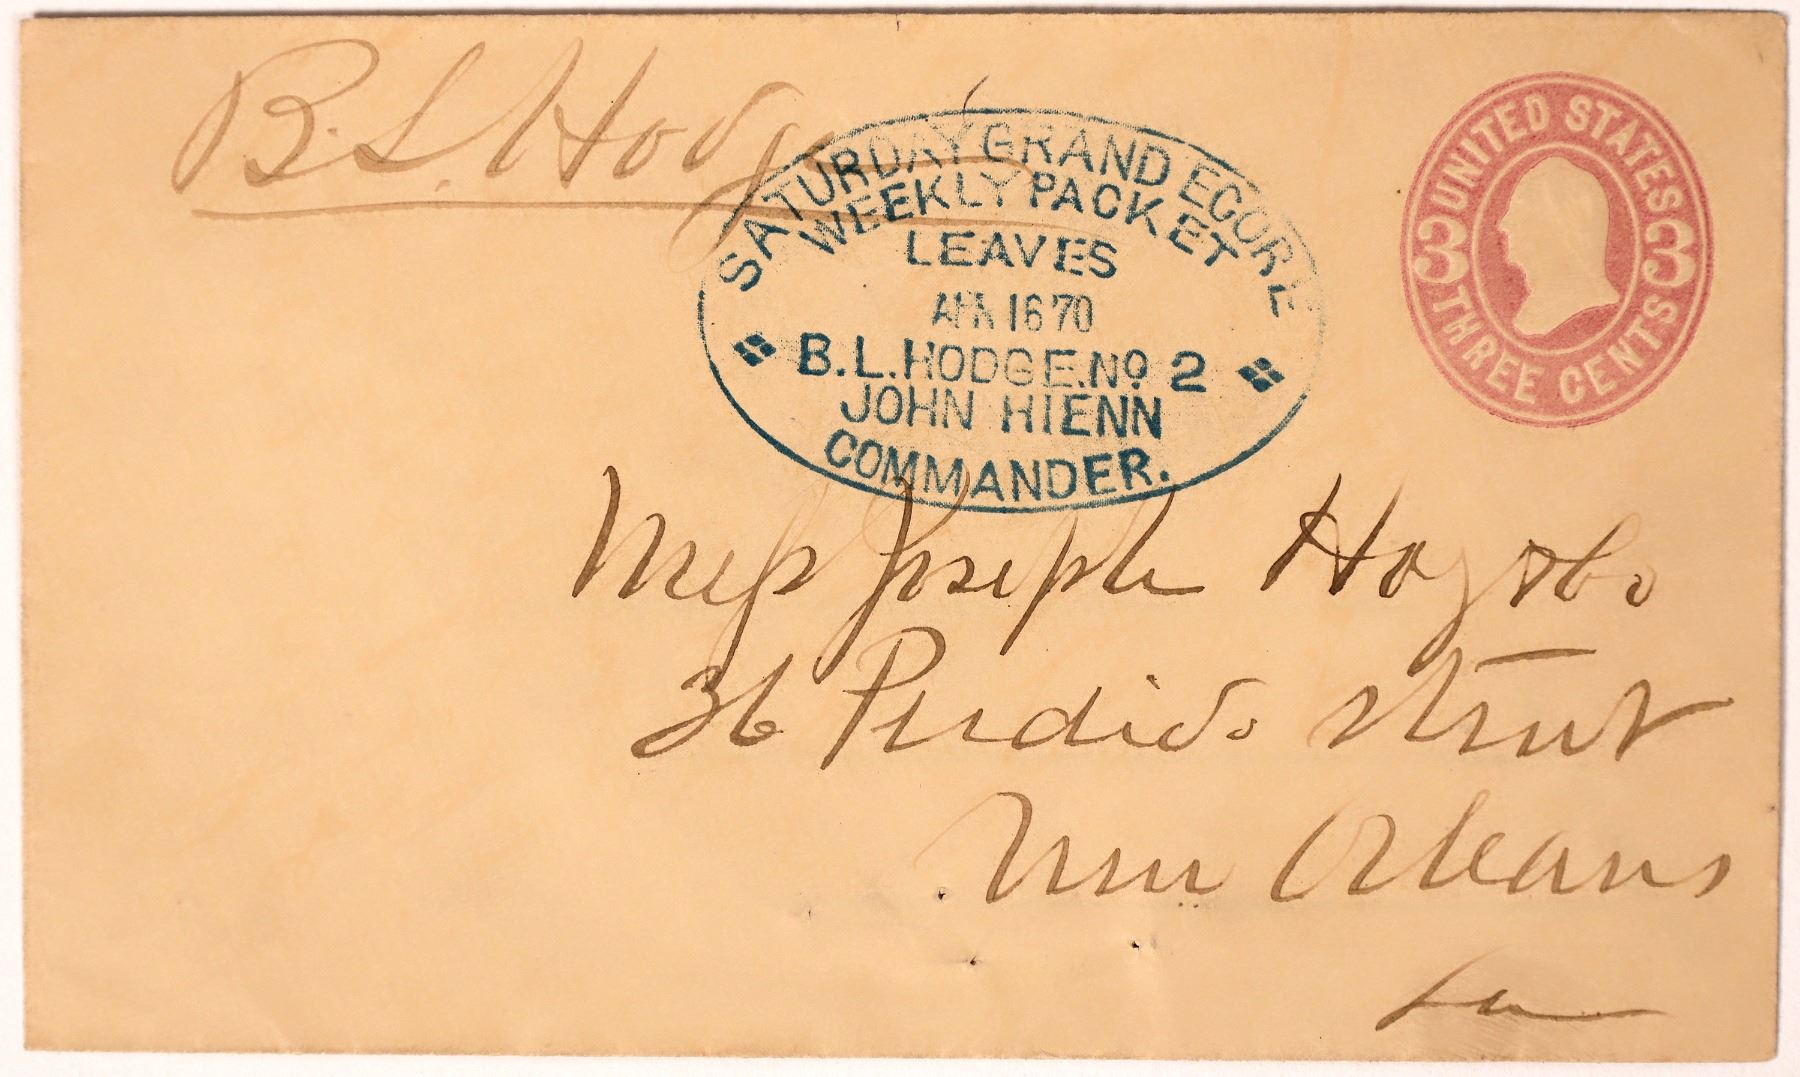 B. L. Hodge
SATURDAY GRAND ECORE
WEEKLY PACKET
LEAVES
APR 16 70
B.L.HODGE.No 2
JOHN HIENN
COMMANDER.
UNITED STATES
3 3
THREE CENTS
Mess Joseph Hoy & Co
36 Perdido Street
New Orleans
La